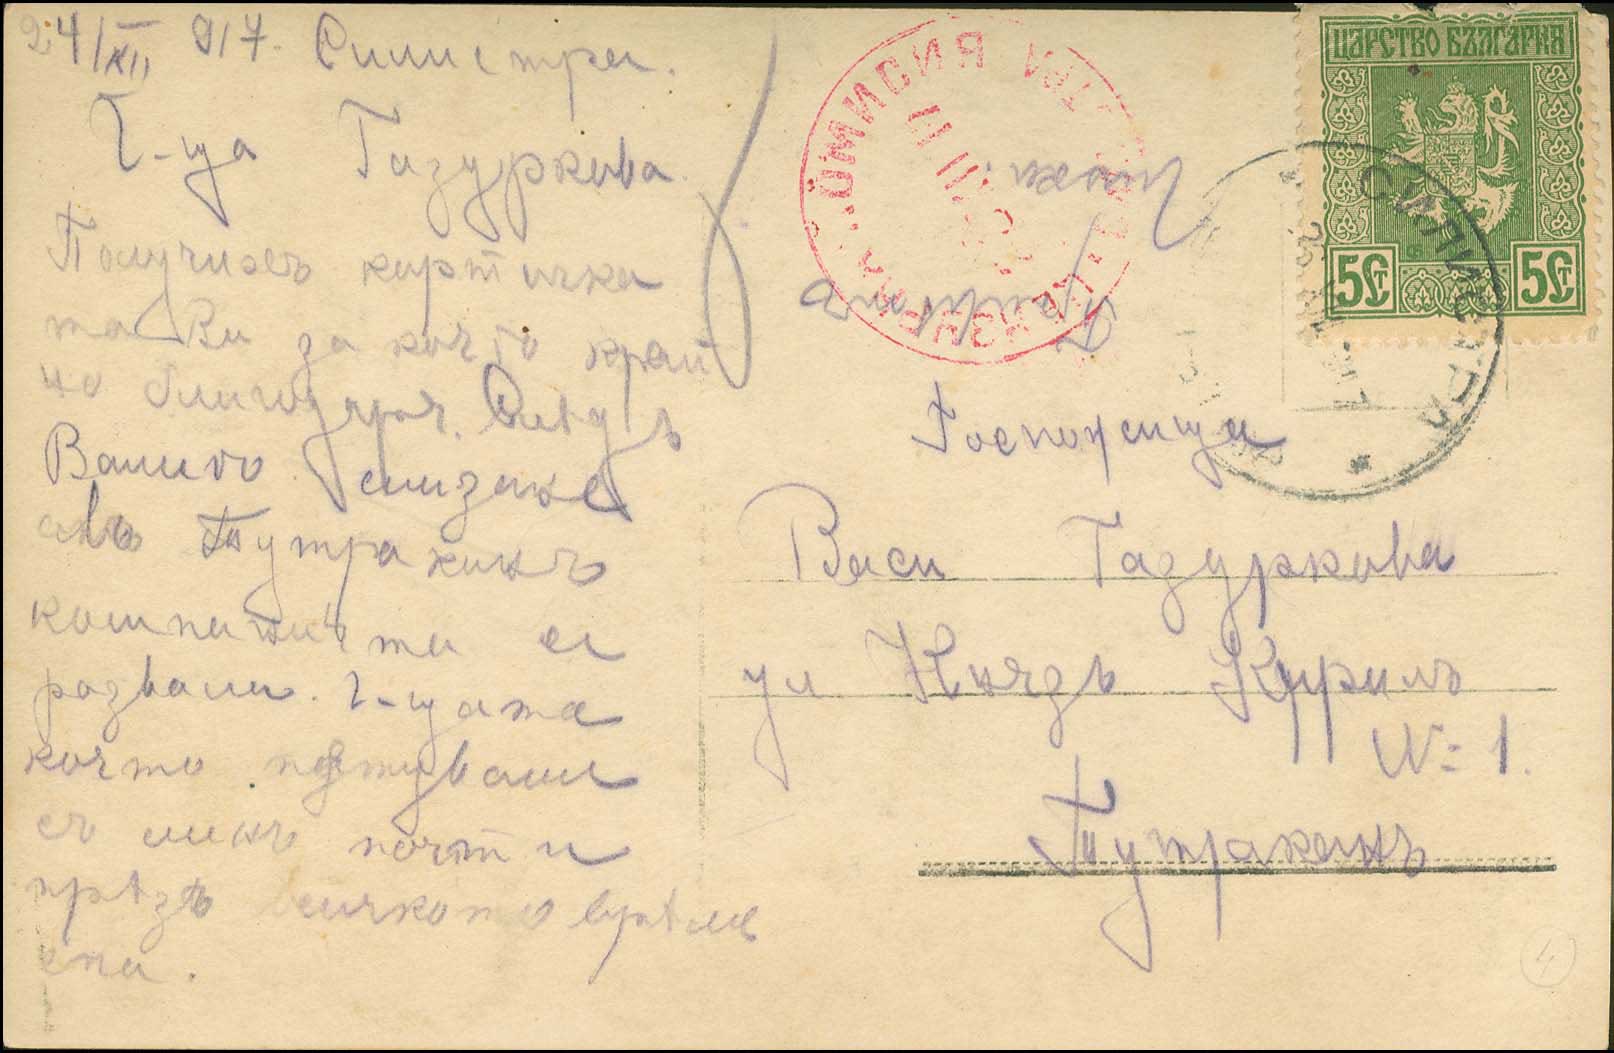 24/XII 917. Силистра.
Г-ца Газуркова.
Получихъ картичка
та Ви за която край
но благодаря. Следъ
Вашето слизане
въ Тутраканъ
компанията се
развали. Г-цата
която пътуваше
съ менъ почти
презъ всичкото време
спа.
ЦАРСТВО БЪЛГАРИЯ
5 СТ 5 СТ
СИЛИСТРА
Госпожица
Васи Газуркова
ул. Князъ Кирилъ
№ 1.
Тутраканъ
4